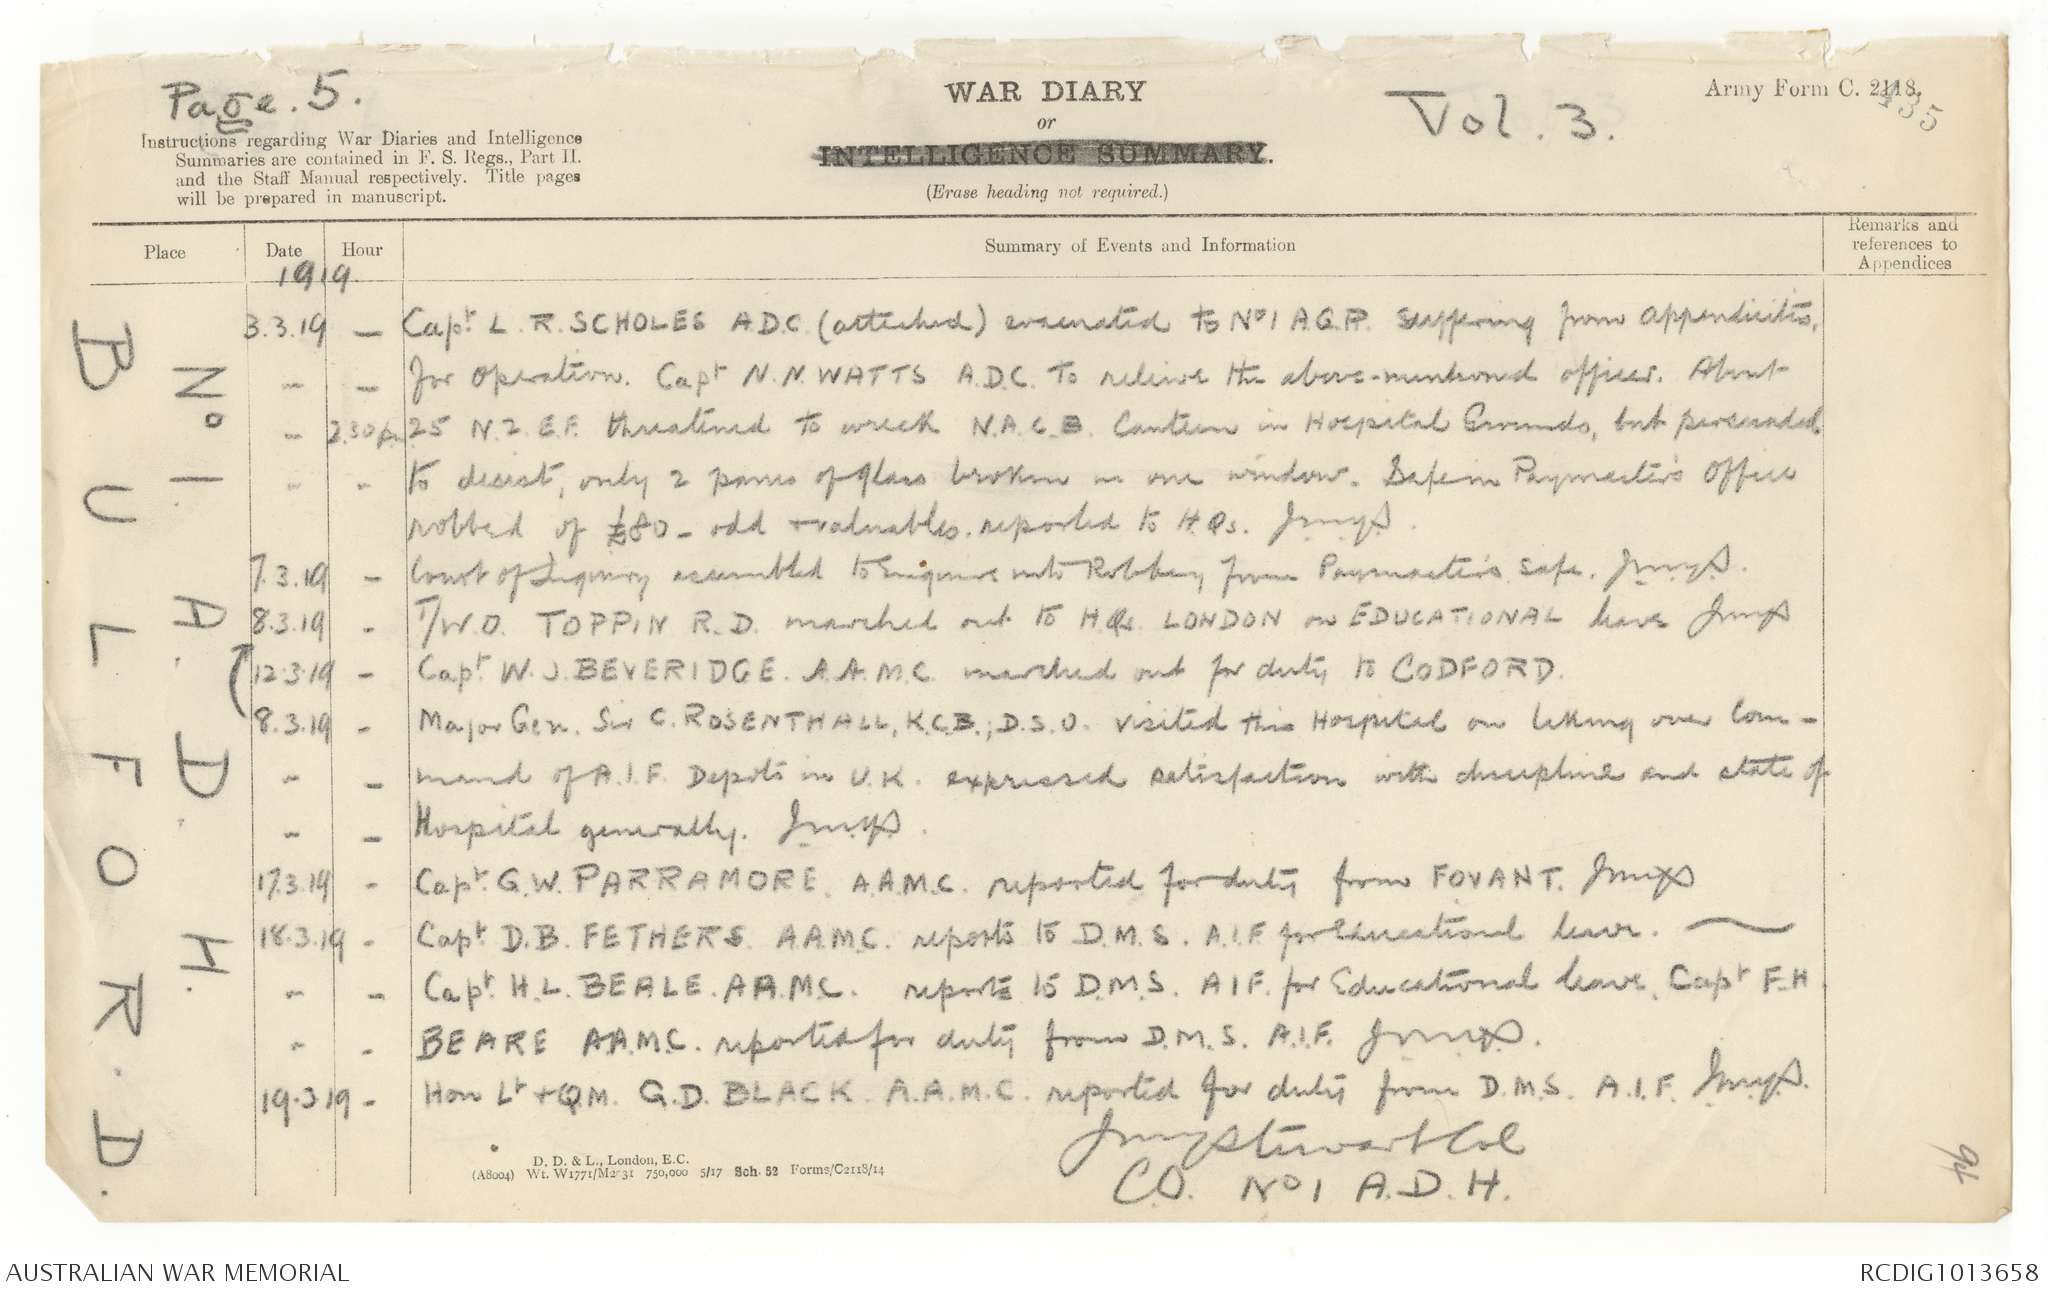 Page. 5.
WAR DIARY
Vol. 3.
Army Form C. 2118.
435
or
Instructions regarding War Diaries and Intelligence
Summaries are contained in F. S. Regs., Part II.
and the Staff Manual respectively. Title pages
will be prepared in manuscript.
INTELLIGENCE SUMMARY.
(Erase heading not required.)
Place
Date
Hour
Summary of Events and Information
Remarks and
references to
Appendices
1919
No 1. A. D. H.
BULFORD.
3.3.19 — Capt L. R. SCHOLES A.D.C. (attached) evacuated to No 1 A.G.H. suffering from appendicitis,
" — for operation. Capt N. N. WATTS A.D.C. to relieve the above-mentioned officer. About
" 2.30 pm 25 N.Z.E.F. threatened to wreck N.A.C.B. Canteen in Hospital Grounds, but persuaded
" - to desist, only 2 panes of glass broken in one window. Safe in Paymaster's Office
robbed of £80 - odd + valuables. reported to H.Qs. JMYS.
7.3.19 — Court of Inquiry assembled to Enquire into Robbery from Paymaster's Safe. JMYS.
8.3.19 - T/W.O. TOPPIN R.D. marched out to HQrs LONDON on EDUCATIONAL leave JMYS
12.3.19 - Capt W. J. BEVERIDGE. A.A.M.C. marched out for duty to CODFORD.
8.3.19 - Major Gen. Sir C. ROSENTHALL, K.C.B., D.S.O. visited this Hospital on taking over Com-
" - mand of A.I.F. Depots in U.K. expressed satisfaction with discipline and state of
" - Hospital generally. JMYS.
17.3.19 - Capt. G.W. PARRAMORE. A.A.M.C. reported for duty from FOVANT. JMYS
18.3.19 - Capt D.B. FETHERS. A.A.M.C. reports to D.M.S. A.I.F. for Educational leave.
" - Capt. H.L. BEALE. A.A.M.C. reports to D.M.S. A.I.F. for Educational leave. Capt F.H.
" - BEARE A.A.M.C. reported for duty from D.M.S. A.I.F. JMYS.
19.3.19 - Hon Lt + QM. G.D. BLACK. A.A.M.C. reported for duty from D.M.S. A.I.F. JMYS.
JMYStewart Col
CO. No 1 A.D.H.
D. D. & L., London, E.C.
(A8004) Wt. W1771/M2031 750,000 5/17 Sch. 52 Forms/C2118/14
AUSTRALIAN WAR MEMORIAL
RCDIG1013658